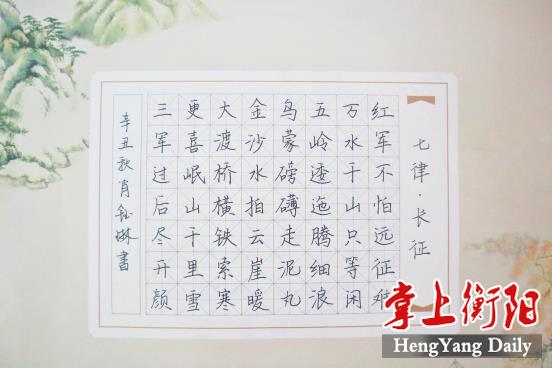 七律·长征
红军不怕远征难
万水千山只等闲
五岭逶迤腾细浪
鸟蒙磅礴走泥丸
金沙水拍云崖暖
大渡桥横铁索寒
更喜岷山千里雪
三军过后尽开颜
辛丑秋肖钰琳書
掌上衡阳
HengYang Daily